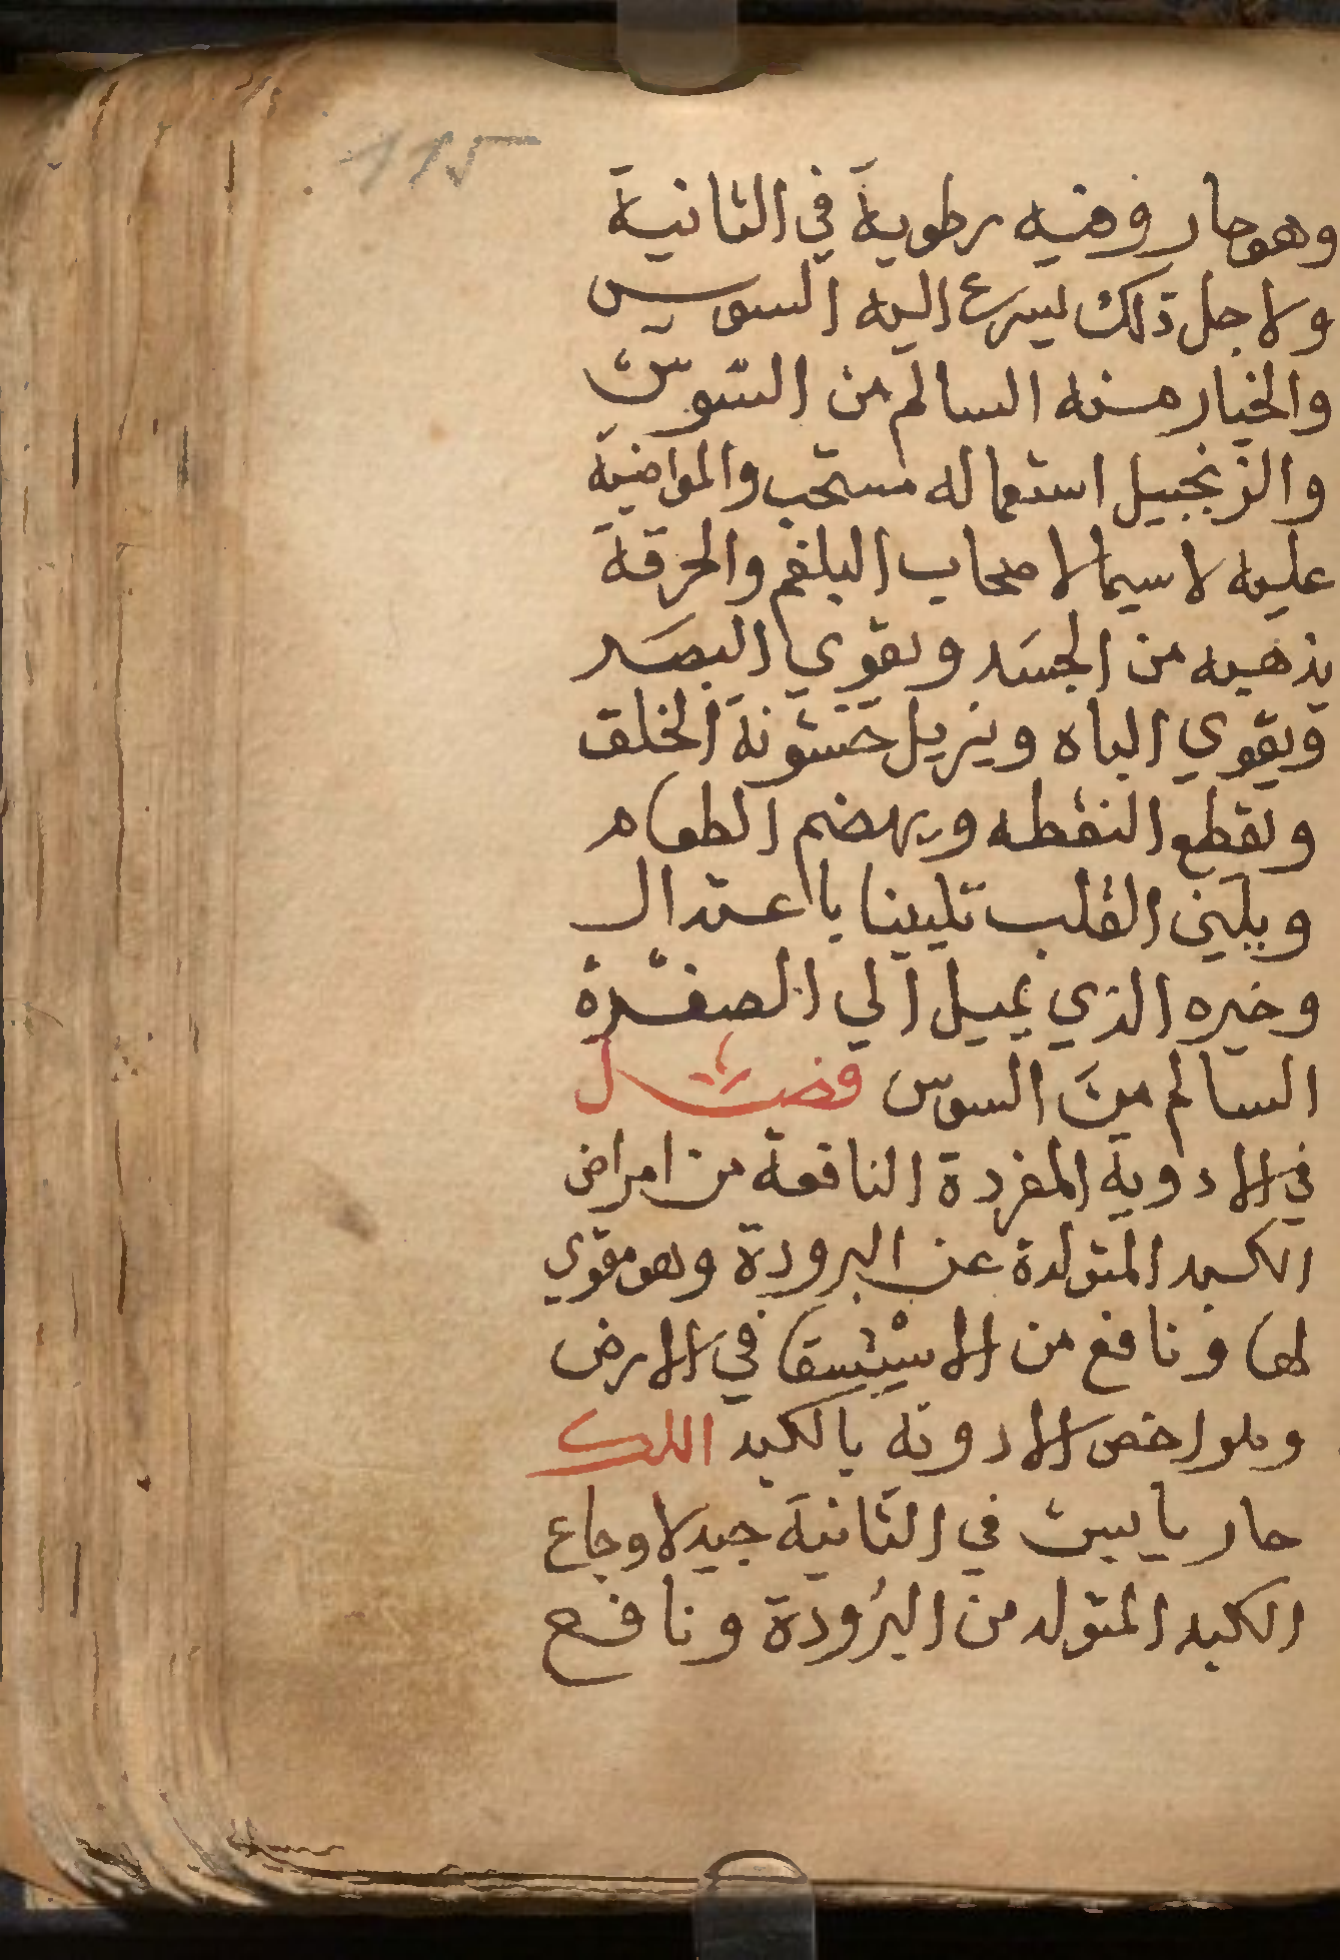 115
وهو حار وفيه رطوبة في الثانية
ولاجل ذلك يسرع اليه السوس
والخيار منه السالم من السوس
والزنجبيل استعماله مستحب والمواضبة
عليه لاسيما لاصحاب البلغم والحرقة
يذهبه من الجسد ويقوي البصر
ويقوي الباه ويزيل خشونة الخلق
ويقطع النقطه ويهضم الطعام
ويلين القلب تليينا باعتدال
وخيره الذي يميل الي الصفرة
السالم من السوس فصل
في الادوية المفردة النافعة من امراض
الكبد المتولدة عن البرودة وهو مقوي
لها ونافع من الاستسقا في الارض
الادوية بالكبد اللك
حار يابس في الثانية جيد لاوجاع
الكبد المتولد من البرودة ونافع